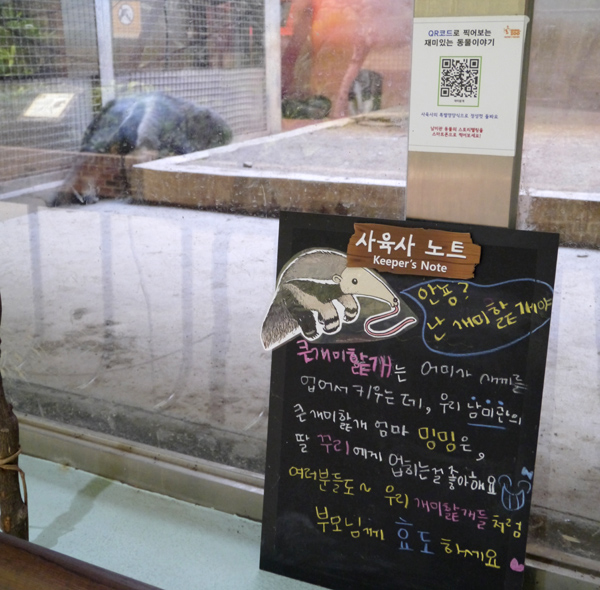 QR코드로 찍어보는
재미있는 동물이야기
사육사 노트
Keeper's Note
안뇽?
난 개미핥개야
큰개미핥개는 어미가 새끼를
업어서 키우는데, 우리 남미관의
큰개미핥개 엄마 밍밍은,
딸 꾸리에게 업히는걸 좋아해요
여러분들도~ 우리 개미핥개들처럼
부모님께 효도하세요